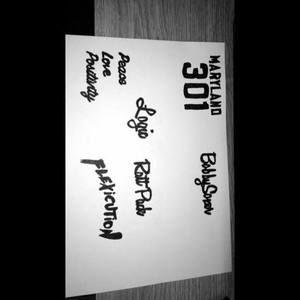 MARYLAND
301
BobbySoxer
Logic
RattPack
Peace
Love
Positivity
FLEXICUTION